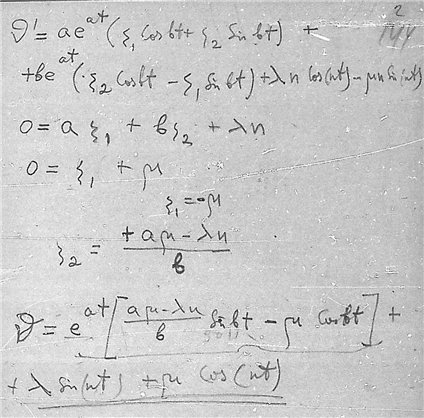 2
144
ϑ' = ae^{at}(ξ₁ Cos bt + ξ₂ Sin bt) +
+ be^{at}(ξ₂ Cos bt − ξ₁ Sin bt) + λn Cos(nt) − μn Sin(nt)
0 = aξ₁ + bξ₂ + λn
0 = ξ₁ + μ
ξ₁ = −μ
ξ₂ = (+ aμ − λn)/b
ϑ = e^{at}[(aμ − λn)/b Sin bt − μ Cos bt] +
+ λ Sin(nt) + μ Cos(nt)